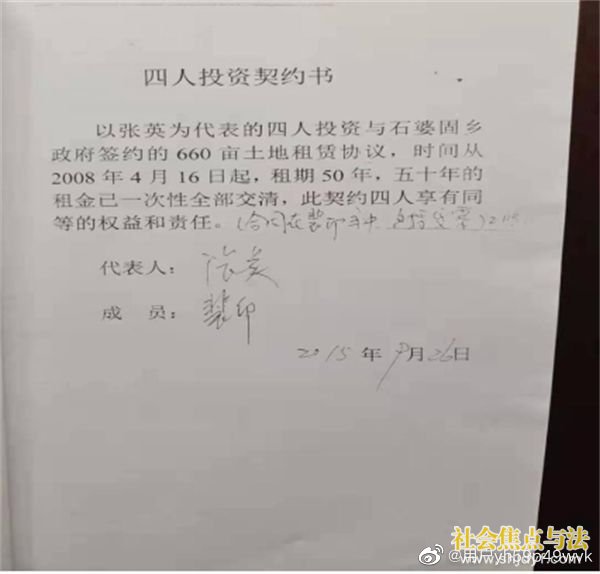 四人投资契约书
以张英为代表的四人投资与石婆固乡
政府签约的 660 亩土地租赁协议，时间从
2008 年 4 月 16 日起，租期 50 年，五十年的
租金已一次性全部交清，此契约四人享有同
等的权益和责任。(合同在裴印手中
代表人：张英
成 员：裴印
2015 年 9 月 26 日
社会焦点与法
@用户yhb9p49wvk